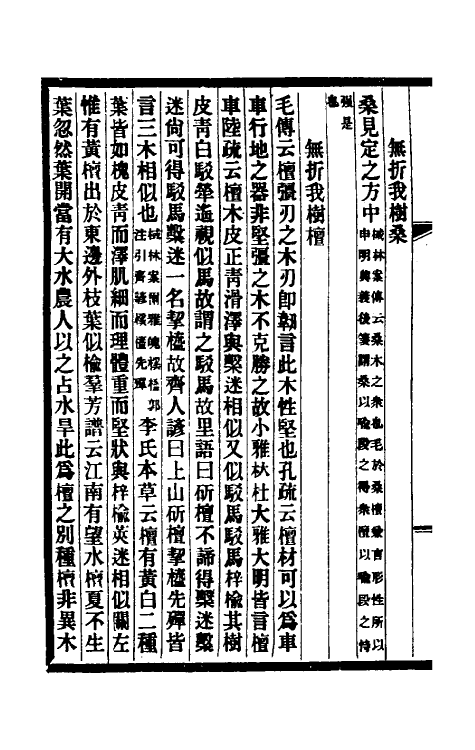 無折我樹桑
桑見定之方中棫林案傳云桑木之衆也毛於桑檀兼言形性所以
申明興義後箋謂桑以喻段之得衆檀以喻段之恃
强是
也
無折我樹檀
毛傳云檀彊刃之木刃卽韌言此木性堅也孔疏云檀材可以爲車
車行地之器非堅彊之木不克勝之故小雅杕杜大雅大明皆言檀
車陸疏云檀木皮正靑滑澤與檕迷相似又似駁馬駁馬梓榆其樹
皮靑白駁犖遙視似馬故謂之駁馬故里語曰斫檀不諦得檕迷檕
迷尙可得駁馬檕迷一名挈橀故齊人諺曰上山斫檀挈橀先殫皆
言三木相似也棫林案爾雅魄榽橀郭
注引齊諺榽橀先殫李氏本草云檀有黃白二種
葉皆如槐皮靑而澤肌細而理體重而堅狀與梓榆莢迷相似關左
惟有黃檀出於東邊外枝葉似榆羣芳譜云江南有望水檀夏不生
葉忽然葉開當有大水農人以之占水旱此爲檀之別種檀非異木